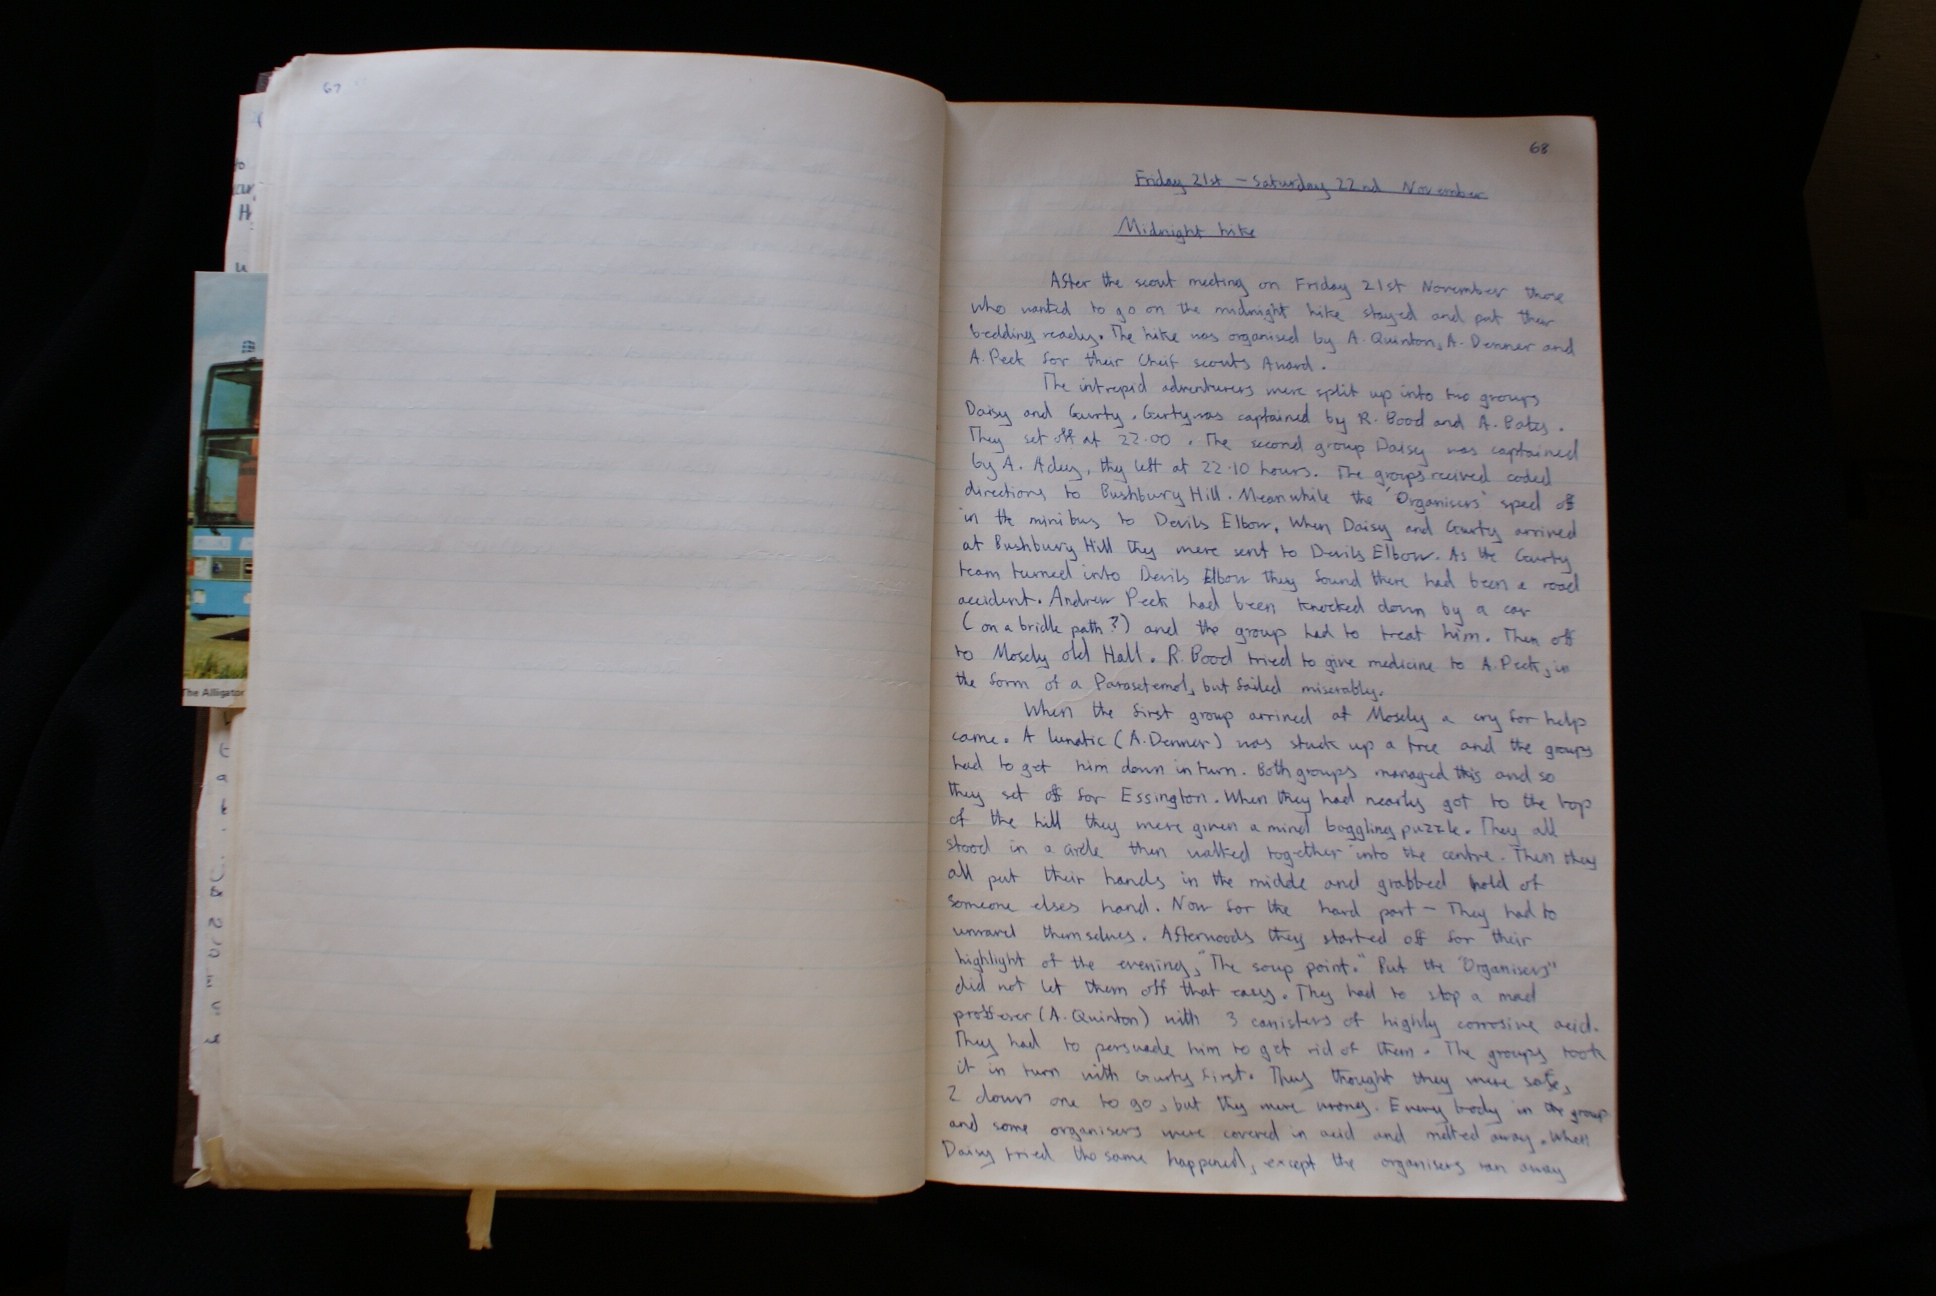 67
68
Friday 21st - Saturday 22nd November
Midnight hike
After the scout meeting on Friday 21st November those
who wanted to go on the midnight hike stayed and put their
bedding ready. The hike was organised by A. Quinton, A. Denner and
A. Peek for their Cheif scouts Award.
The intrepid adventurers were split up into two groups
Daisy and Gurty. Gurty was captained by R. Bood and A. Bates.
They set off at 22.00. The second group Daisy was captained
by A. Adey, thy left at 22.10 hours. The groups recived coded
directions to Bushbury Hill. Meanwhile the 'Organisers' speed off
in the minibus to Devils Elbow. When Daisy and Gurty arrived
at Bushbury Hill they were sent to Devils Elbow. As the Gurty
team turned into Devils Elbow they found there had been a road
accident. Andrew Peek had been knocked down by a car
(on a bridle path?) and the group had to treat him. Then off
to Mosely old Hall. R. Bood tried to give medicine to A. Peek, in
the form of a Parasetemol, but failed miserably.
When the first group arrived at Mosely a cry for help
came. A lunatic (A. Denner) was stuck up a tree and the groups
had to get him down in turn. Both groups managed this and so
they set off for Essington. When they had nearly got to the top
of the hill they were given a mind boggling puzzle. They all
stood in a circle then walked together into the centre. Then they
all put their hands in the middle and grabbed hold of
someone elses hand. Now for the hard part - They had to
unravel themselves. Afterwoods they started off for their
highlight of the evening, "The soup point." But the "Organisers"
did not let them off that easy. They had to stop a mad
proffesor (A. Quinton) with 3 canisters of highly corrosive acid.
They had to persuade him to get rid of them. The groups took
it in turn with Gurty first. They thought they were safe,
2 down one to go, but they were wrong. Every body in the group
and some organisers were covered in acid and melted away. When
Daisy tried the same happened, except the organisers ran away
The Alligator